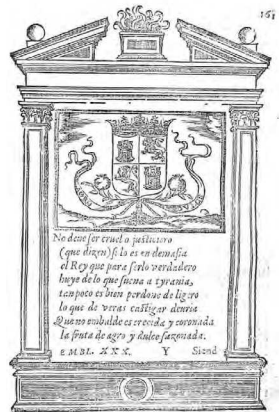 161
No deue ser cruel o justiciero
(que dizen) si lo es en demasia
el Rey que para serlo verdadero
huye de lo que suena a tyrania,
tanpoco es bien perdone de ligero
lo que de veras castigar deuria
Que no enbalde es crecida y coronada
la fruta de agro y dulce sazonada.
EMBL. XXX. Y Siend